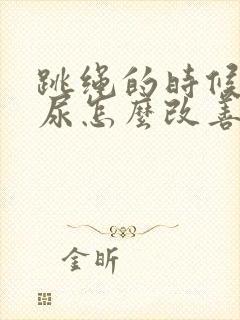 跳绳的時候
尿怎麼改善
金昕